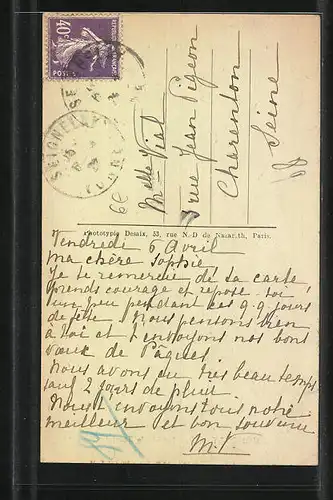 40c
REPUBLIQUE FRANÇAISE
POSTES
SEIGNELAY
YONNE
Melle Vial
5 rue Jean Pigeon
Charenton
Seine
Phototypie Desaix, 53, rue N.-D de Nazareth, Paris.
Vendredi 6 Avril
Ma chère Sophie
Je te remercie de sa carte
prends courage et repose toi
un peu pendant ces q.q. jours
de fête. Nous pensons bien
à toi et t'envoyons nos bons
vœux de Pâques
Nous avons du très beau temps
sauf 2 jours de pluie
Nous t'envoyons tous notre
meilleur et bon souvenir
M.V.